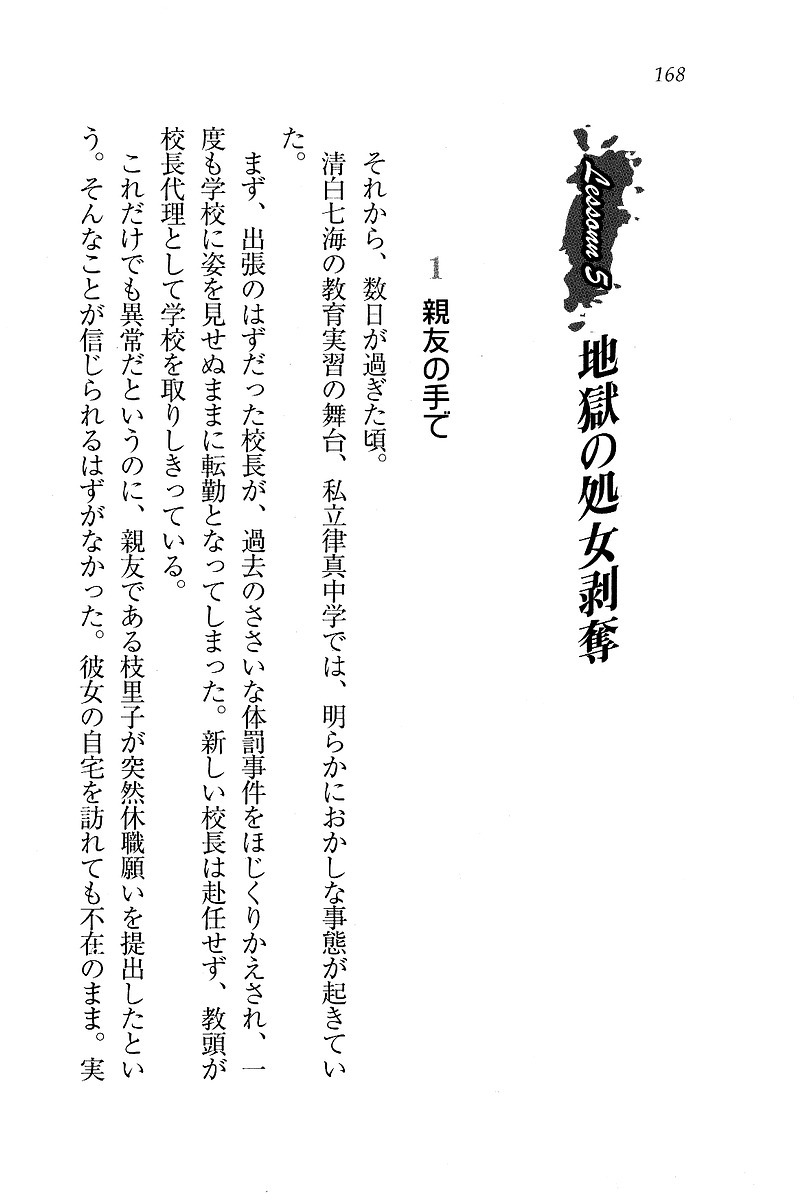 168
Lessonn 5
地獄の処女剥奪
1 親友の手で
それから、数日が過ぎた頃。
清白七海の教育実習の舞台、私立律真中学では、明らかにおかしな事態が起きてい
た。
まず、出張のはずだった校長が、過去のささいな体罰事件をほじくりかえされ、一
度も学校に姿を見せぬままに転勤となってしまった。新しい校長は赴任せず、教頭が
校長代理として学校を取りしきっている。
これだけでも異常だというのに、親友である枝里子が突然休職願いを提出したとい
う。そんなことが信じられるはずがなかった。彼女の自宅を訪れても不在のまま。実